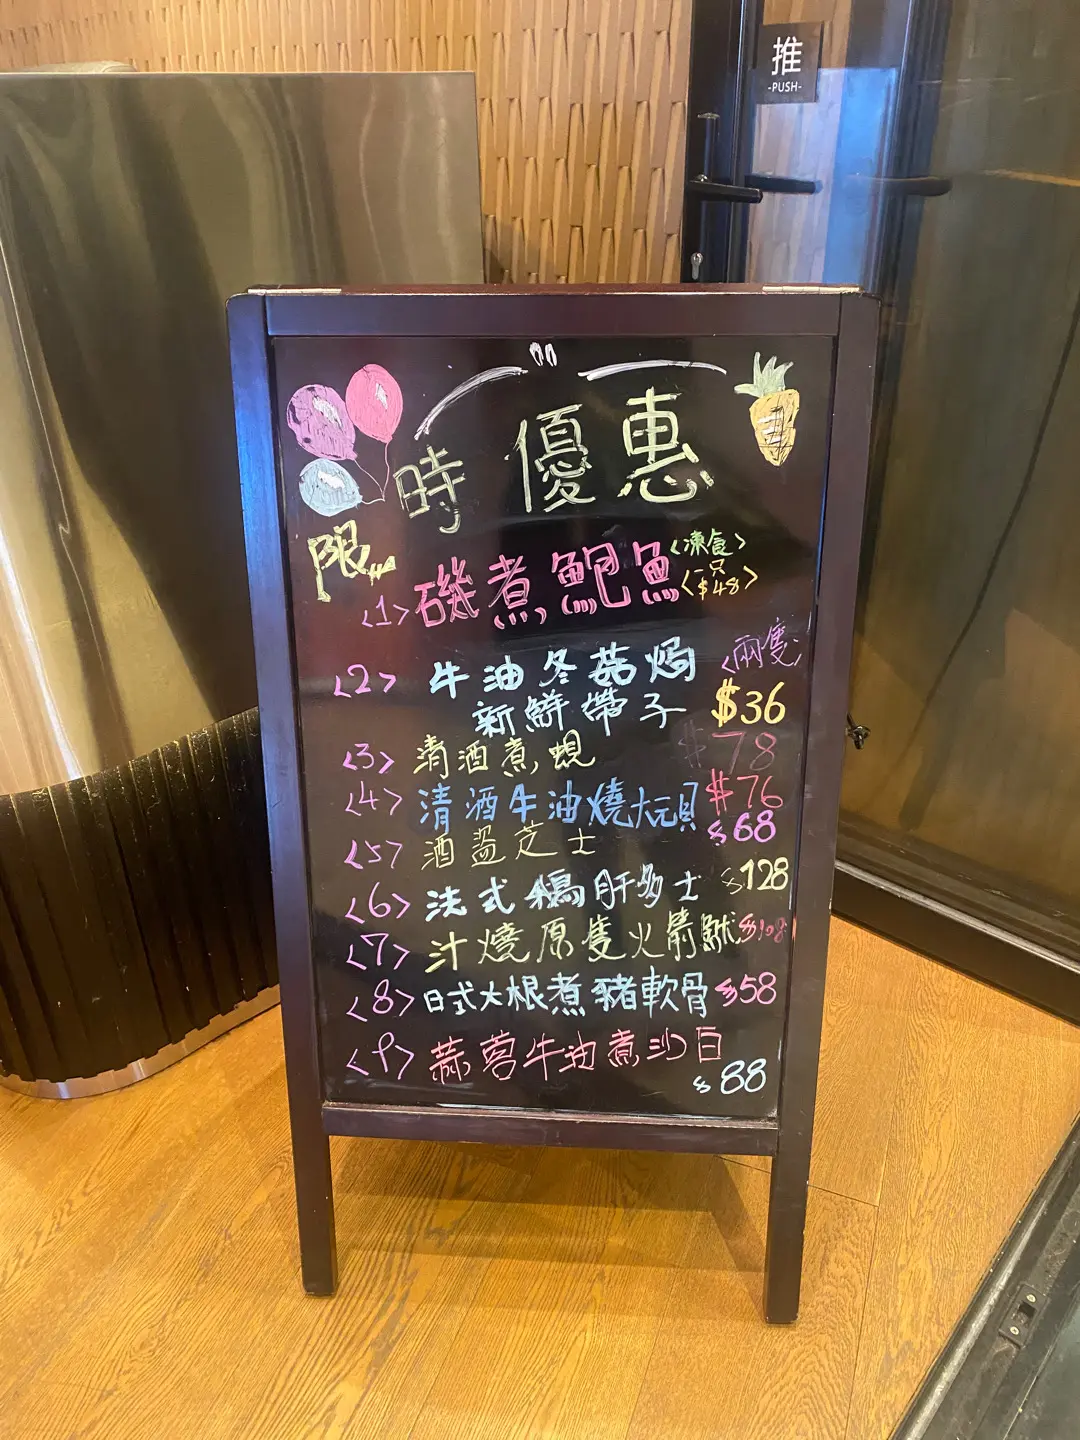 推
-PUSH-
限時優惠
<1>磯煮鮑魚<凍食>
<一只$48>
<2>牛油冬菇焗<兩隻>
新鮮帶子 $36
<3>清酒煮蜆 $78
<4>清酒牛油燒大元貝 $76
<5>酒盜芝士 $68
<6>法式鵝肝多士 $128
<7>汁燒原隻火箭魷 $108
<8>日式大根煮豬軟骨 $58
<9>蒜蓉牛油煮沙白
$88